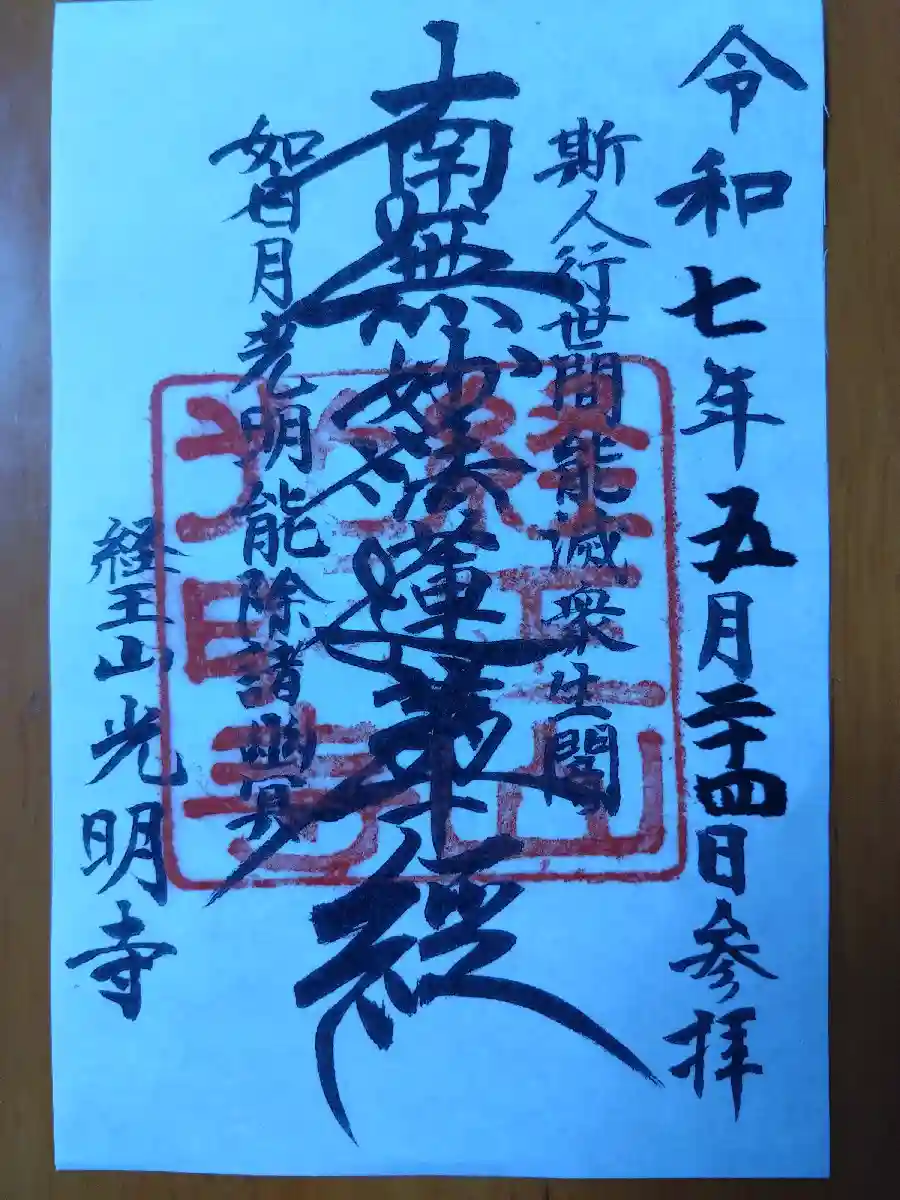 令和七年五月二十四日参拝
斯人行世間能滅衆生闇
南無妙法蓮華経
如日月光明能除諸幽冥
経王山光明寺
経王山
光明寺